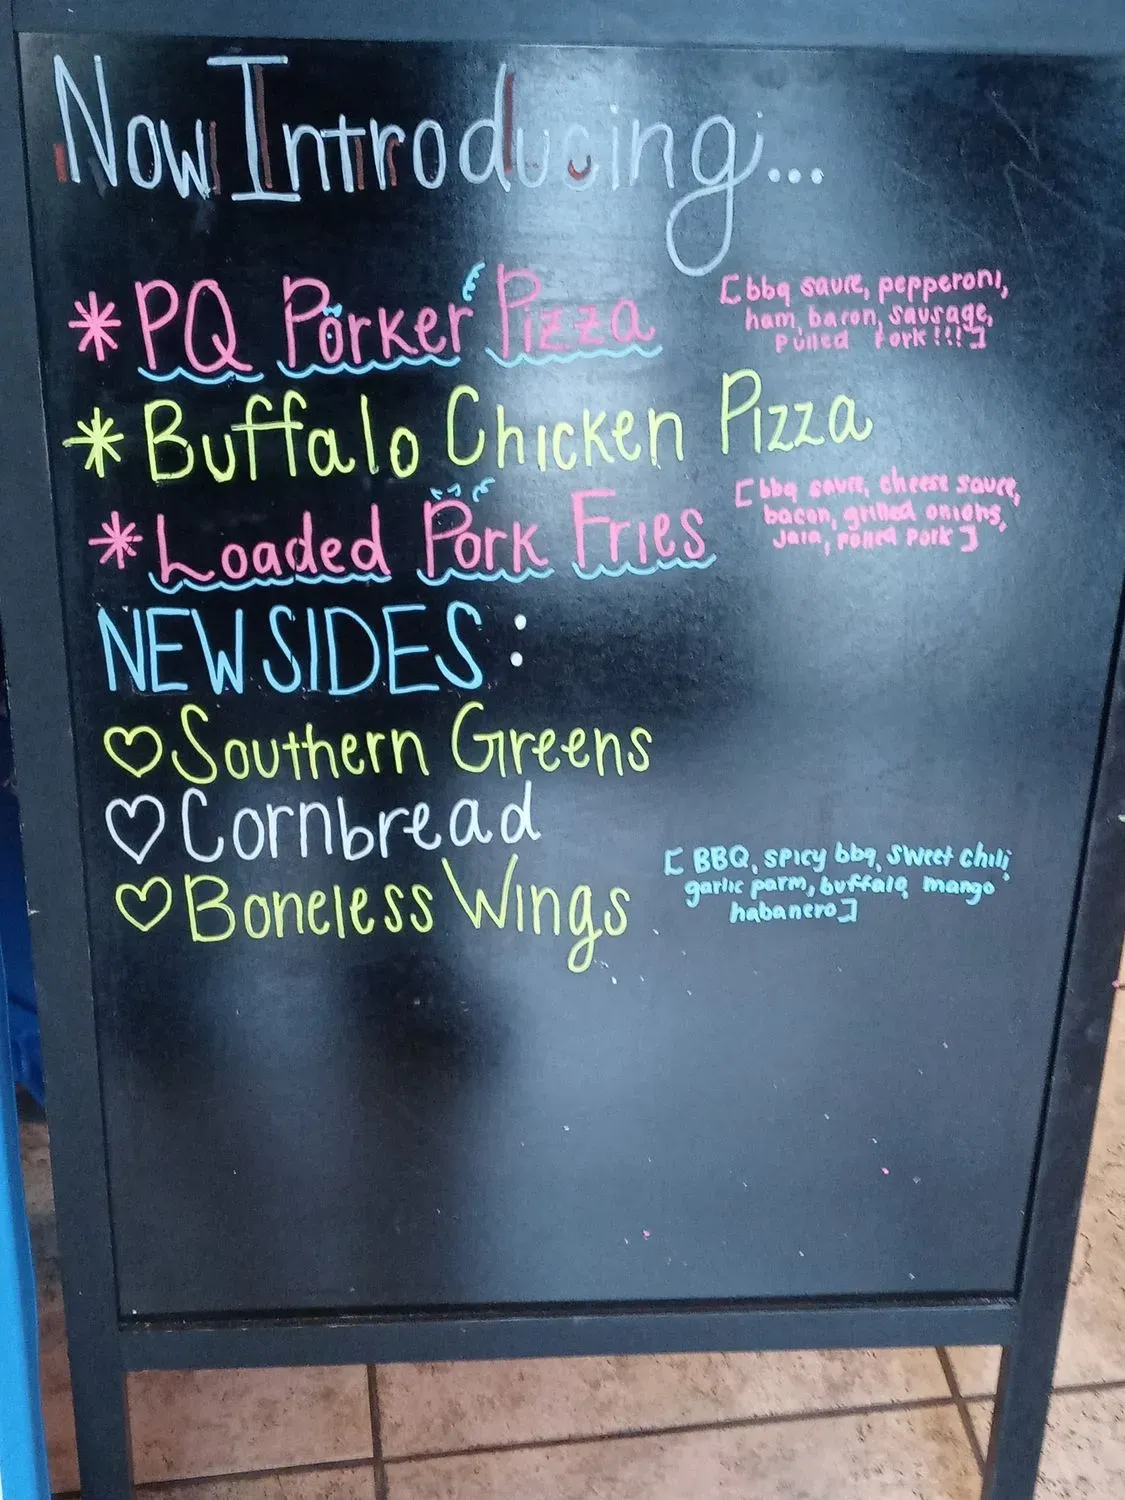 Now Introducing...
* PQ Porker Pizza
[bbq sauce, pepperoni,
ham, bacon, sausage,
Pulled Pork!!!]
* Buffalo Chicken Pizza
* Loaded Pork Fries
[bbq sauce, cheese sauce,
bacon, grilled onions,
Jala, Pulled Pork]
NEW SIDES:
♡ Southern Greens
♡ Cornbread
♡ Boneless Wings
[BBQ, spicy bbq, sweet chili,
garlic parm, buffalo, mango
habanero]